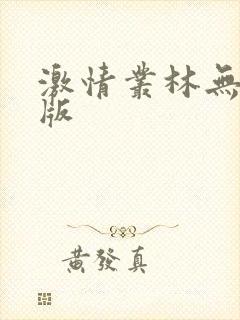 激情叢林無
版
黃發真